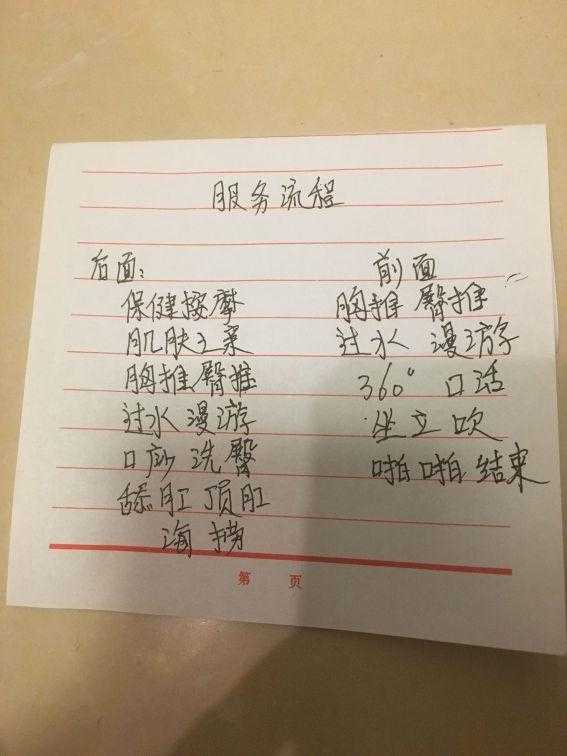 服务流程
后面：
保健按摩
肌肤之柔
胸推臀推
过水漫游
口吵洗臀
舔肛顶肛
海捞
前面
胸推臀推
过水 漫游
360° 口活
坐立吹
啪啪结束
第 页